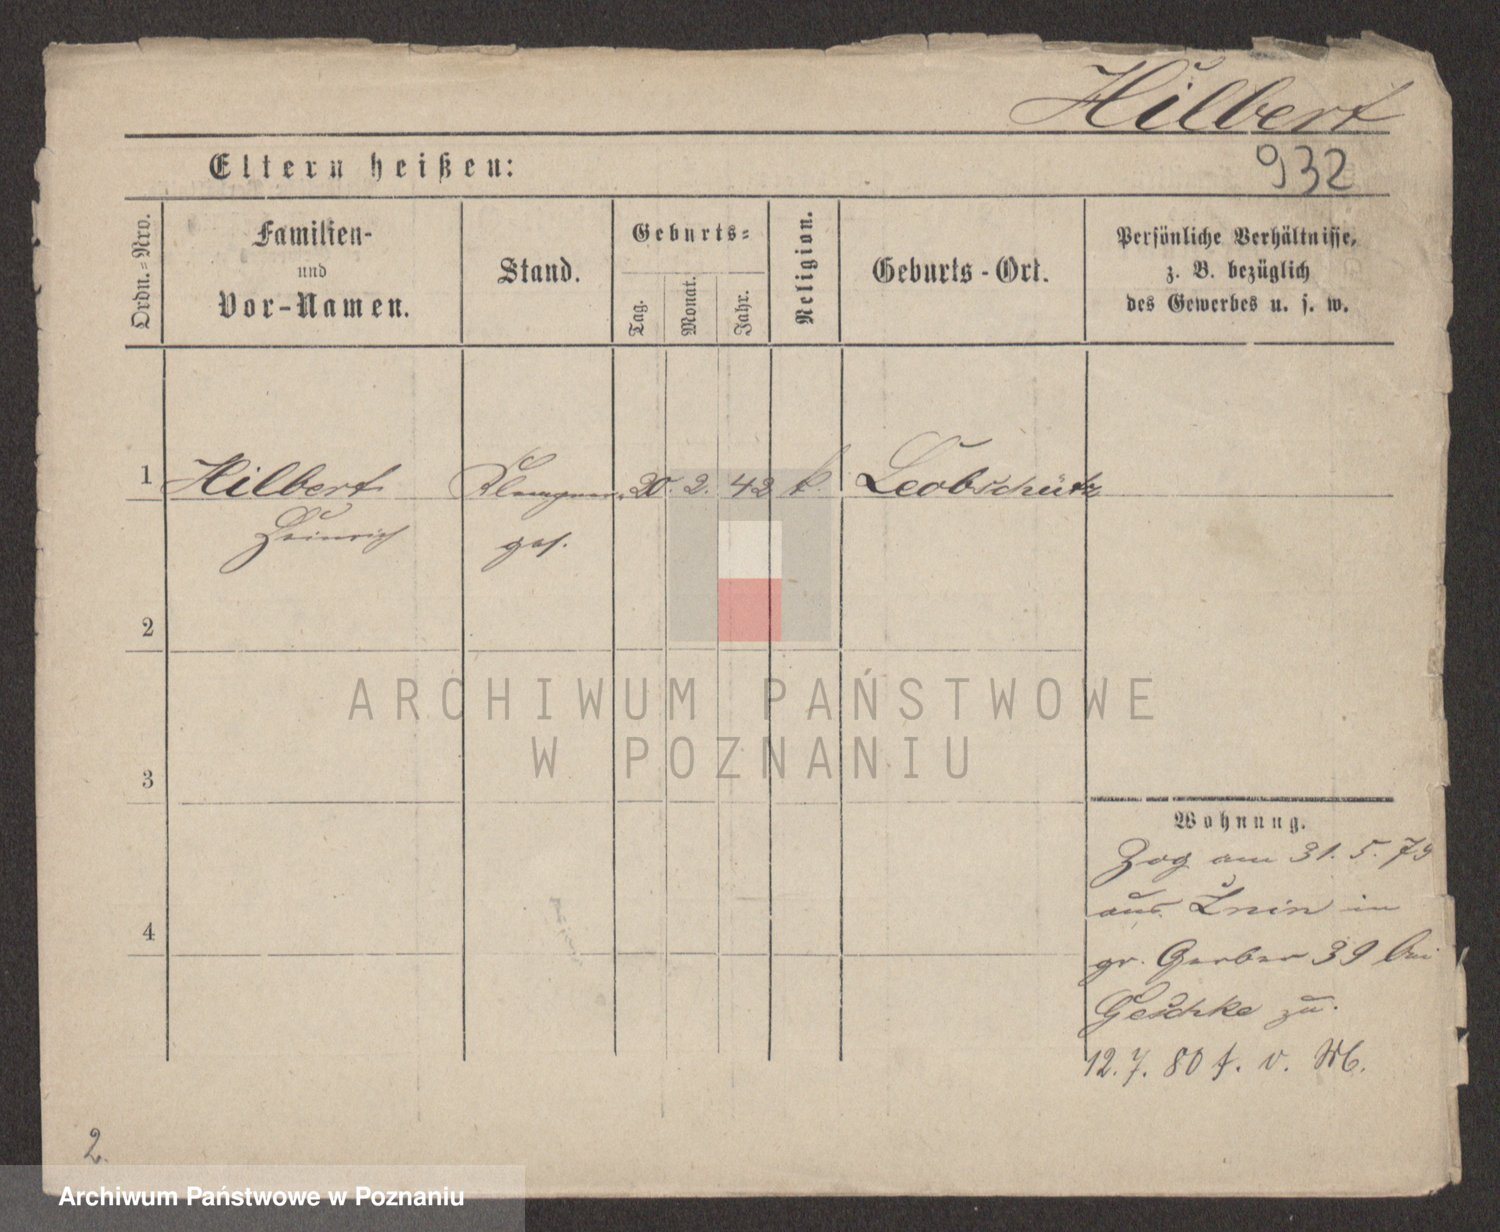 Hilbert
932
Eltern heißen:
Ordn.-Nro.
Familien-
und
Vor-Namen.
Stand.
Geburts-
Tag.
Monat.
Jahr.
Religion.
Geburts-Ort.
Persönliche Verhältnisse,
z. B. bezüglich
des Gewerbes u. s. w.
1 Hilbert 20. 2. 42 k. Leobschütz
Heinrich ges.
2
3
4
Wohnung.
Zog am 31. 5. 79
aus Znin in
gr. Gerber 39 bei
Geschke zu.
12. 7. 80 f. v. M.
2.
ARCHIWUM PAŃSTWOWE
W POZNANIU
Archiwum Państwowe w Poznaniu